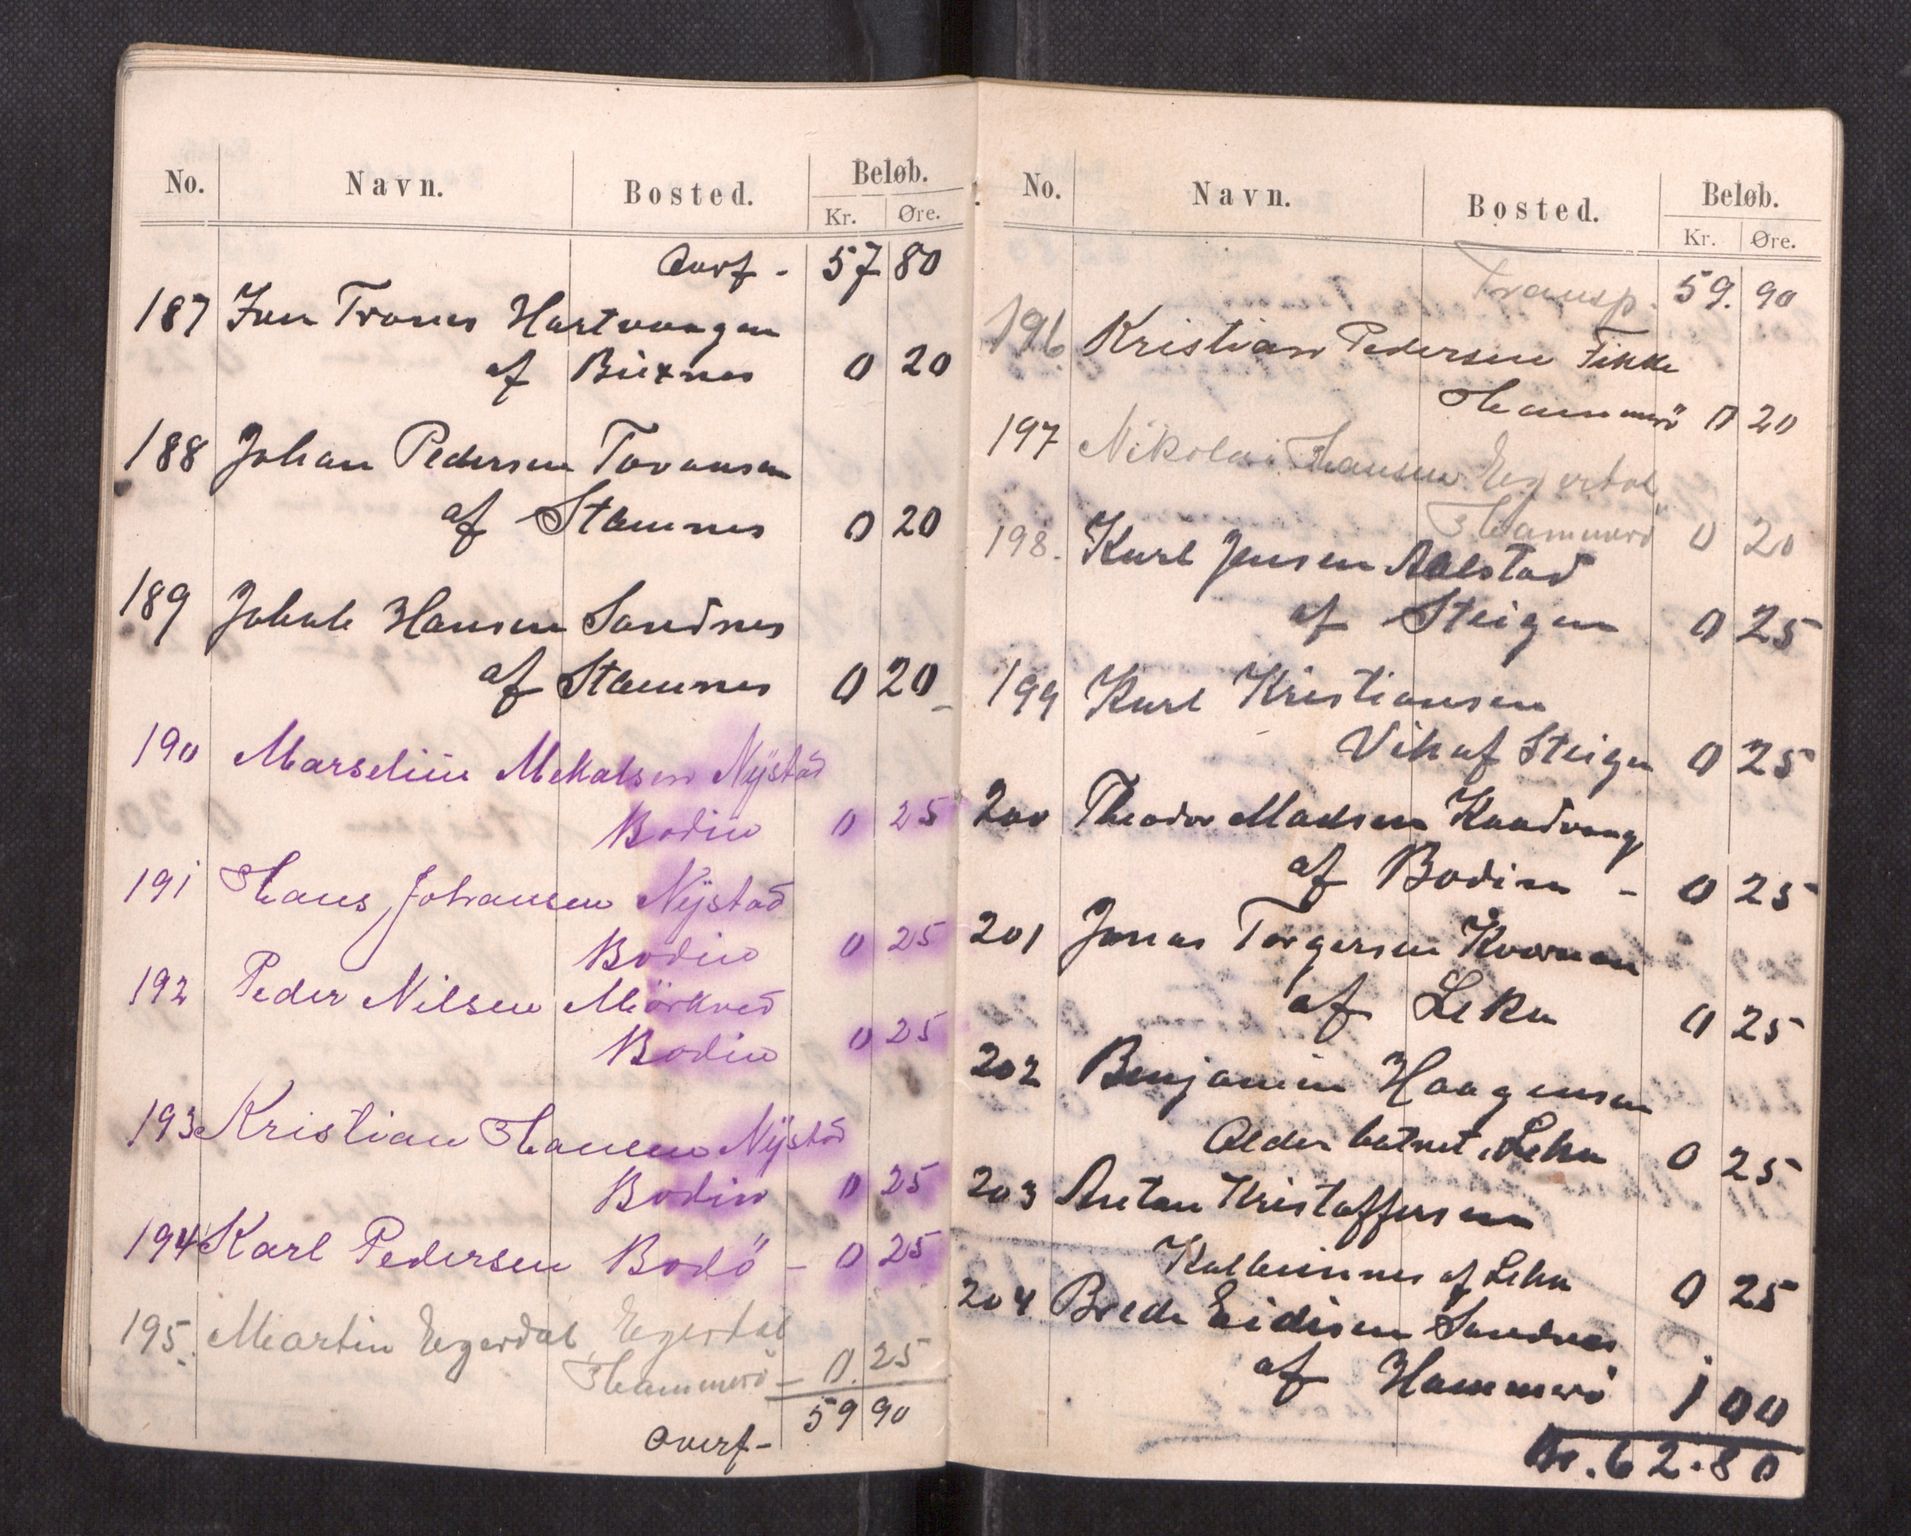 No. Navn. Bosted. Beløb.
Kr. Øre.
Overf - 57 80
187 Hartvaagen
af 0 20
188 Johan Pedersen
af Stamnes 0 20
189 Jakob Hansen Sandnes
af Stamnes 0 20
190 Marseliin Mekalsen Nÿstad
Bodin 0 25
191 Hans Johansen Nÿstad
Bodin 0 25
192 Peder Nilsen Mörkved
Bodin 0 25
193 Kristian Hansen Nÿstad
Bodin 0 25
194 Karl Pedersen Bodö - 0 25
195. Martin Egerdal, Egerdal
Hammerö - 0. 25
Overf - 59 90
No. Navn. Bosted. Beløb.
Kr. Øre.
Transp. 59. 90
196 Kristian Pedersen
Hammerö 0 20
197 Nikolai Hansen Egerdal
Hammerö 0 20
198. Karl Jensen Aalstad
af Steigen 0 25
199 Karl Kristiansen
Vik af Steigen 0 25
200 Theodor Madsen
af Bodin - 0 25
201 Jonas Torgersen
af Leka 0 25
202 Benjamin Haagensen
Leka 0 25
203 Anton Kristoffersen
af Leka 0 25
204 Brede Eidisen Sandnes
af Hammerö 1 00
Kr. 62.80